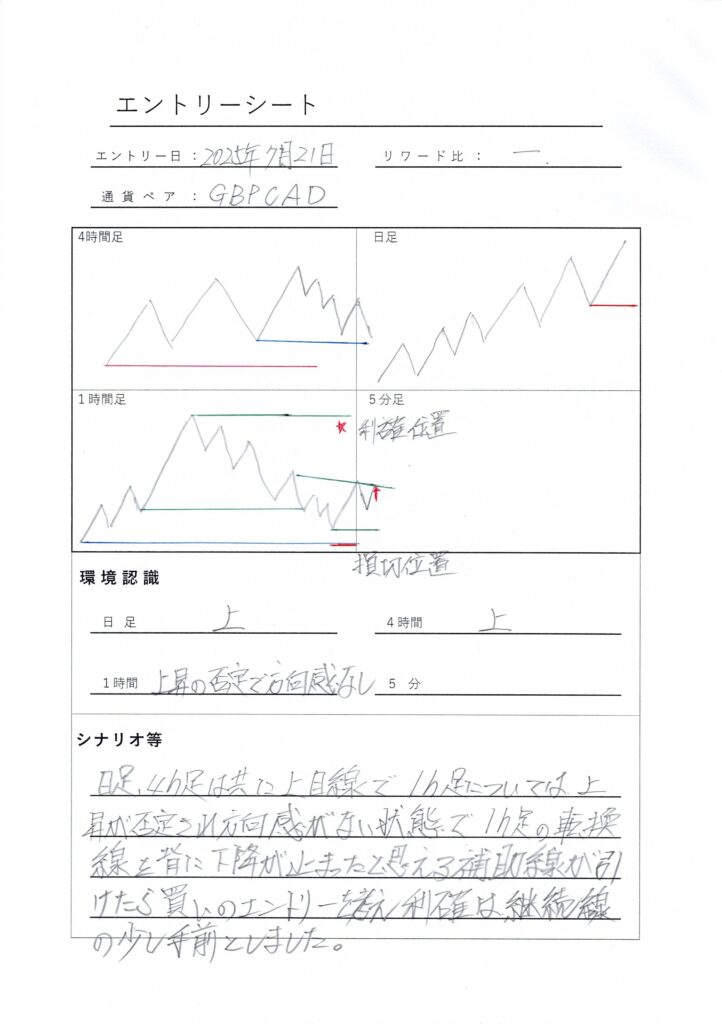 エントリーシート
エントリー日：2025年7月21日
リワード比：ー.
通貨ペア：GBPCAD
4時間足
日足
1時間足
5分足
利確位置
損切位置
環境認識
日足 上
4時間 上
1時間 上昇の否定で方向感なし
5分
シナリオ等
日足、4h足は共に上目線で1h足については、上
昇が否定され方向感がない状態で1h足の転換
線を背に下降が止まったと思える補助線が引
けたら買いのエントリーを考え利確は、継続線
の少し手前としました。